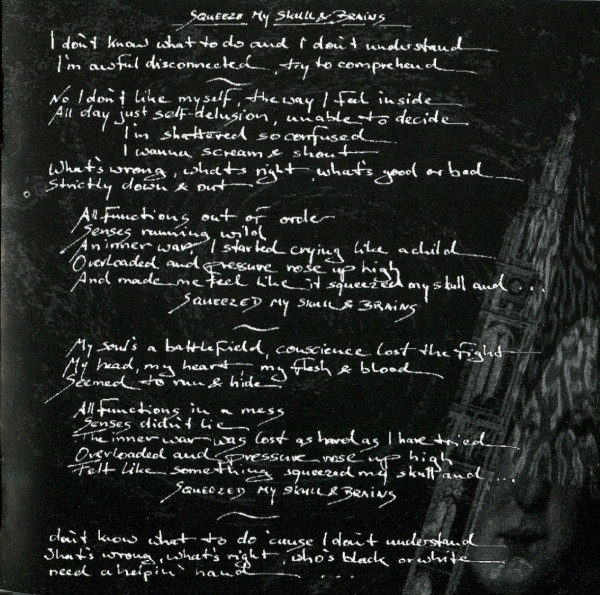 Squeeze My Skull & Brains
I don't know what to do and I don't understand
I'm awful disconnected, try to comprehend
No I don't like myself, the way I feel inside
All day just self-delusion, unable to decide
I'm shattered so confused
I wanna scream & shout
What's wrong, what's right, what's good or bad
Strictly down & out
All functions out of order
Senses running wild
An inner war, I started crying like a child
Overloaded and pressure rose up high
And made me feel like it squeezed my skull and ...
Squeezed My Skull & Brains
My soul's a battlefield, conscience lost the fight
My head, my heart, my flesh & blood
Seemed to run & hide
All functions in a mess
Senses didn't lie
The inner war was lost as hard as I have tried
Overloaded and pressure rose up high
Felt like something squeezed my skull and ...
Squeezed My Skull & Brains
don't know what to do 'cause I don't understand
What's wrong, what's right, who's black or white
need a helpin' hand ....